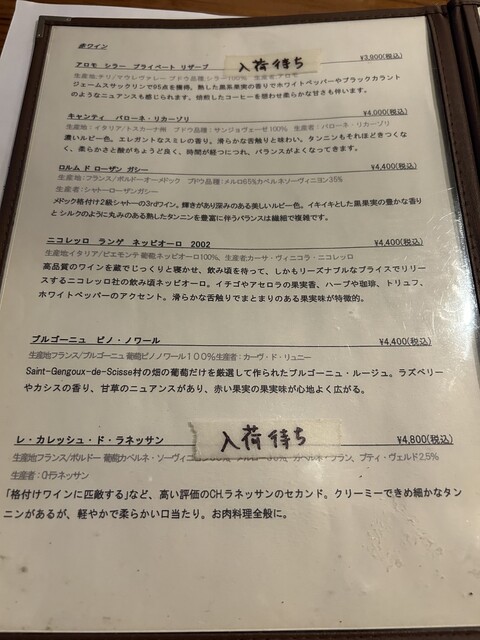 赤ワイン
アロモ シラー プライベート リザーブ 入荷待ち ¥3,900(税込)
生産地:チリ/マウレヴァレー ブドウ品種:シラー100% 生産者:アロモ
ジェームスサックリンで95点を獲得。熟した黒系果実の香りでホワイトペッパーやブラックカラント
のようなニュアンスも感じられます。焙煎したコーヒーを思わせ柔らかな甘さも伴います。
キャンティ バローネ・リカーゾリ ¥4,000(税込)
生産地:イタリア/トスカーナ州 ブドウ品種:サンジョヴェーゼ100% 生産者:バローネ・リカーゾリ
濃いルビー色。エレガントなスミレの香り。滑らかな舌触りと味わい。タンニンもそれほどきつくな
く、柔らかさと酸がちょうど良く、時間が経つにつれ、バランスがよくなってきます。
ロルム ド ローザン ガシー ¥4,400(税込)
生産地:フランス/ボルドーオーメドック ブドウ品種:メルロ65%カベルネソーヴィニヨン35%
生産者:シャトーローザンガシー
メドック格付け2級シャトーの3rdワイン。輝きがあり深みのある美しいルビー色。イキイキとした黒果実の豊かな香り
と シルクのように丸みのある熟したタンニンを豊富に伴うバランスは繊細で複雑です。
ニコレッロ ランゲ ネッビオーロ 2002 ¥4,400(税込)
生産地:イタリア/ピエモンテ 葡萄:ネッビオーロ100%、生産者:カーサ・ヴィニコラ・ニコレッロ
高品質のワインを蔵でじっくりと寝かせ、飲み頃を待って、しかもリーズナブルなプライスでリリー
スするニコレッロ社の飲み頃ネッビオーロ。イチゴやアセロラの果実香、ハーブや珈琲、トリュフ、
ホワイトペッパーのアクセント。滑らかな舌触りでまとまりのある果実味が特徴的。
ブルゴーニュ ピノ・ノワール ¥4,400(税込)
生産地フランス/ブルゴーニュ 葡萄ピノノワール100%生産者:カーヴ・ド・リュニー
Saint-Gengoux-de-Scisse村の畑の葡萄だけを厳選して作られたブルゴーニュ・ルージュ。ラズベリー
やカシスの香り、甘草のニュアンスがあり、赤い果実の果実味が心地よく広がる。
レ・カレッシュ・ド・ラネッサン 入荷待ち ¥4,800(税込)
生産地フランス/ボルドー 葡萄カベルネ・ソーヴィニヨン カベルネ・フラン、プティ・ヴェルド2.5%
生産者:CH.ラネッサン
「格付けワインに匹敵する」など、高い評価のCH.ラネッサンのセカンド。クリーミーできめ細かなタン
ニンがあるが、軽やかで柔らかい口当たり。お肉料理全般に。